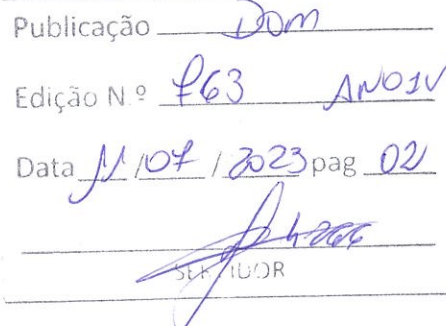 Publicação DOM
Edição N.º 763 ANO IV
Data 11/07/2023 pag 02
SERVIDOR